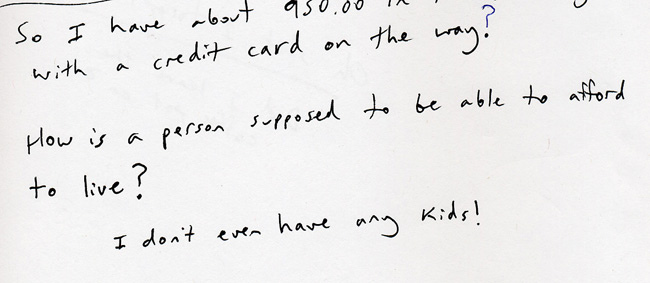 So I have about 950.00 in
with a credit card on the way?
How is a person supposed to be able to afford
to live?
I don't even have any kids!